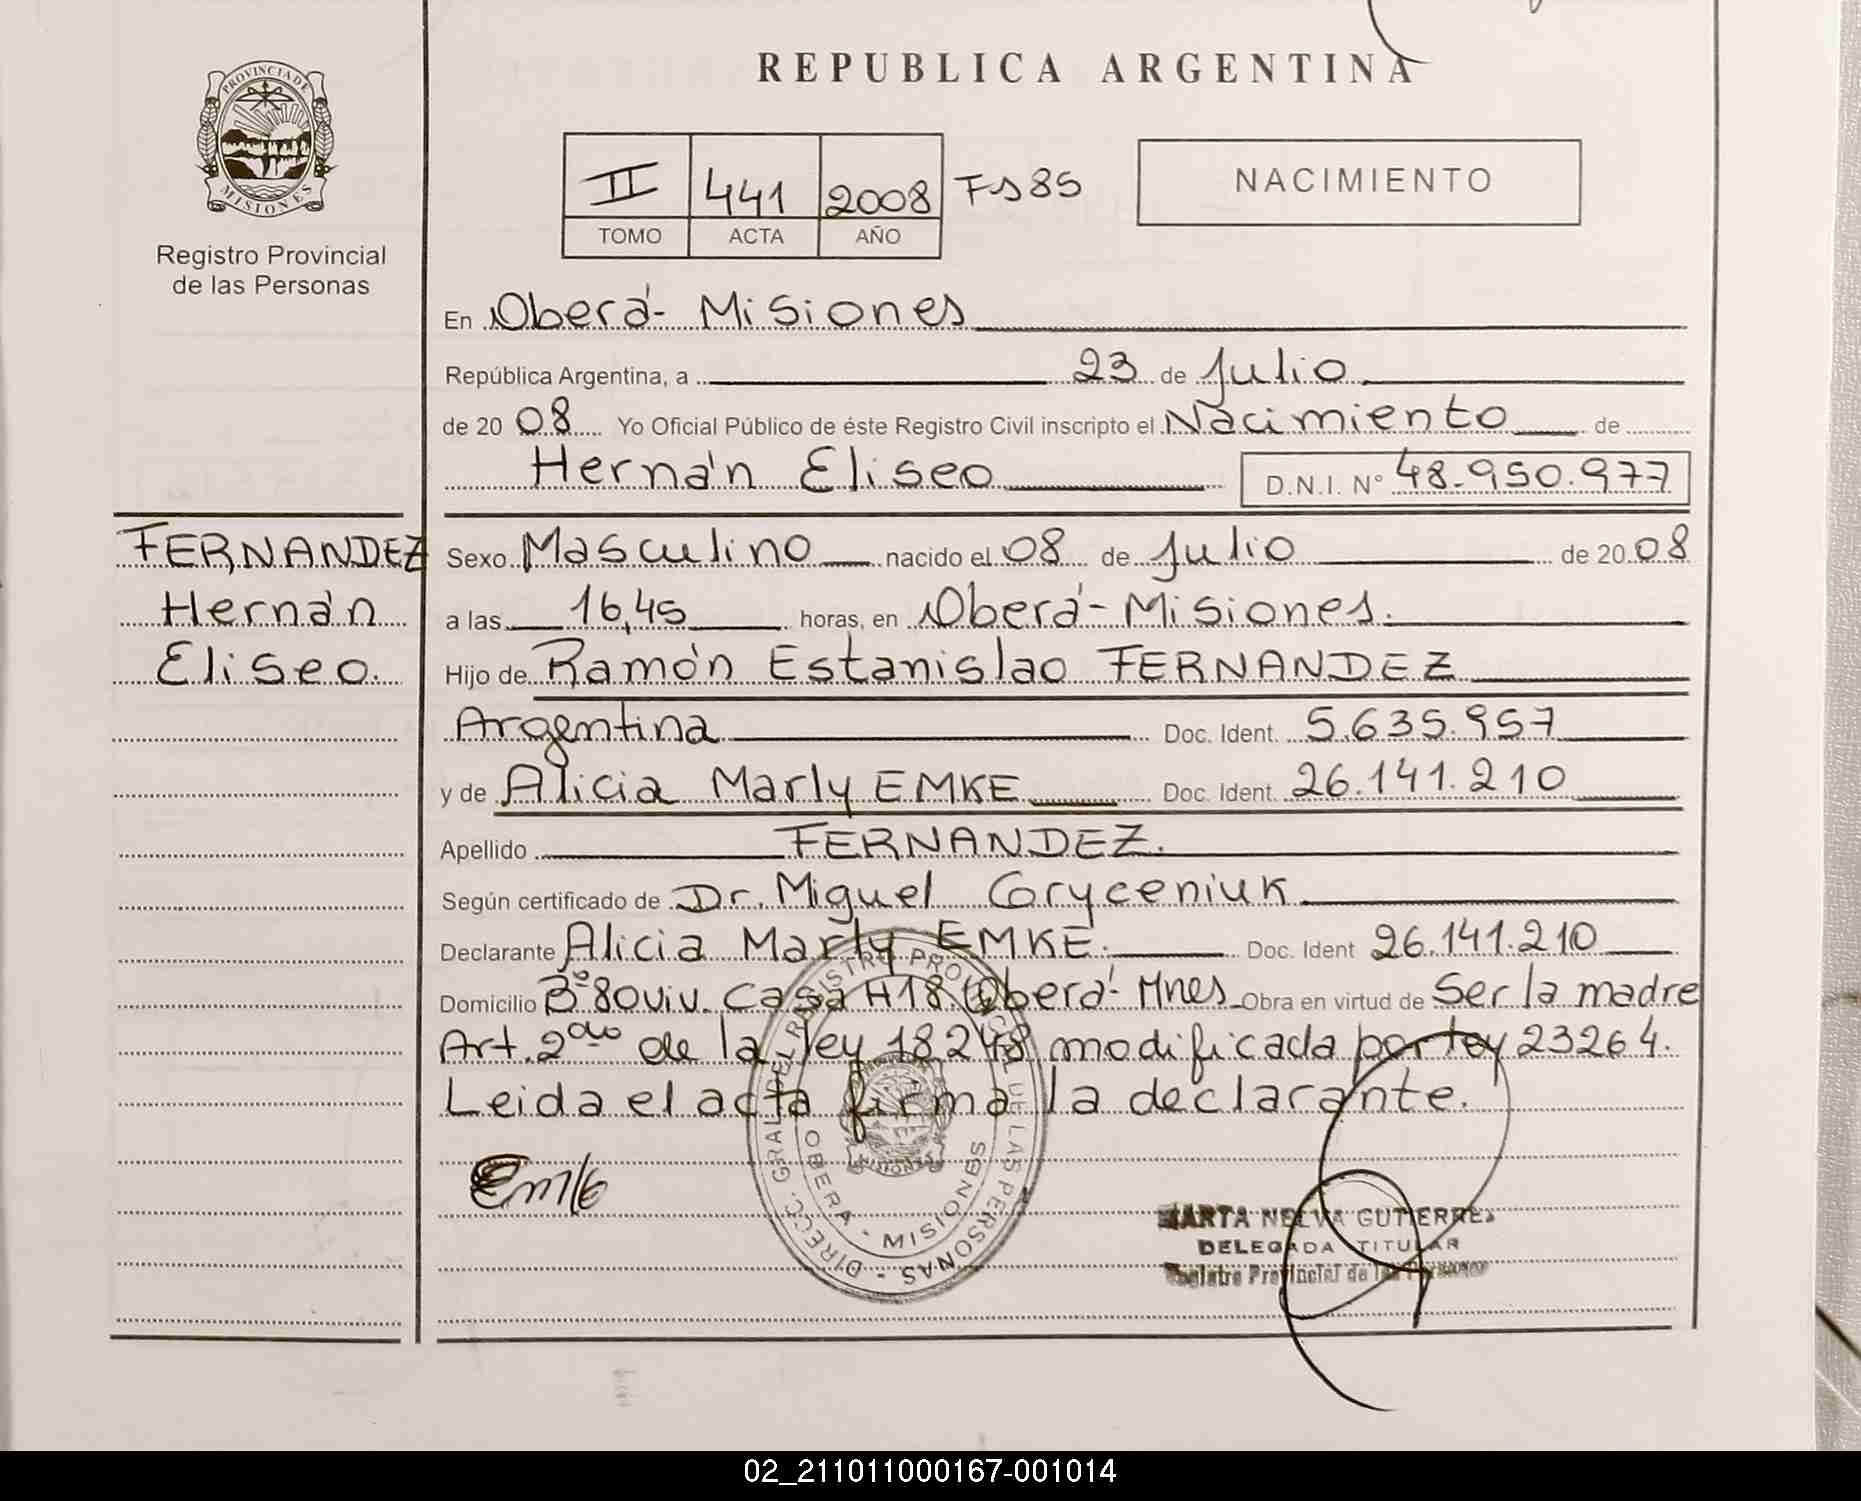 REPUBLICA ARGENTINA
PROVINCIA DE
MISIONES
Registro Provincial
de las Personas
II 441 2008 Fs 85
TOMO ACTA AÑO
NACIMIENTO
En Oberá- Misiones
República Argentina, a 23 de Julio
de 20 08 Yo Oficial Público de éste Registro Civil inscripto el Nacimiento de
Hernán Eliseo D.N.I. N° 48.950.977
FERNANDEZ
Hernán
Eliseo.
Sexo Masculino nacido el 08 de Julio de 20 08
a las 16,45 horas, en Oberá- Misiones.
Hijo de Ramón Estanislao FERNANDEZ
Argentina Doc. Ident. 5.635.957
y de Alicia Marly EMKE Doc. Ident. 26.141.210
Apellido FERNANDEZ.
Según certificado de Dr. Miguel Coryceniuk
Declarante Alicia Marly EMKE. Doc. Ident 26.141.210
Domicilio B° 80 viv. Casa H18. Oberá- Mnes Obra en virtud de Ser la madre
Art. 2do de la ley 18248 modificada por ley 23264.
Leida el acta firma la declarante.
DIRECC. GRAL DEL REGISTRO PROVINCIAL DE LAS PERSONAS -
OBERA - MISIONES
MISIONES
MARTA NELVA GUTIERREZ
DELEGADA TITULAR
Registro Provincial de las Personas
02_211011000167-001014